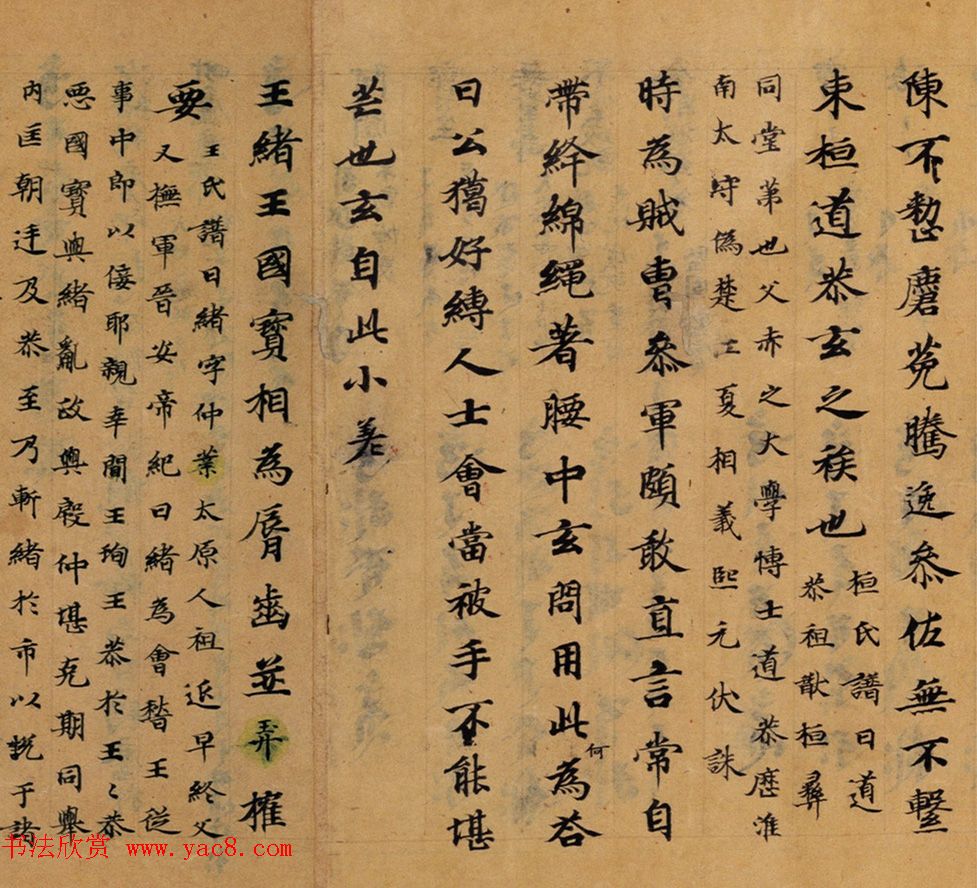 陳不整麏菟騰逸叅佐無不繫
束桓道恭玄之族也
桓氏譜曰道
恭祖猷桓彝
同堂弟也父赤之大學博士道恭歷淮
南太守偽楚江夏相義熙元伏誅
時為賊曹叅軍頗敢直言常自
帶絳綿繩著腰中玄問用此為何荅
曰公獦好縛人士會當被手不能堪
芒也玄自此小差
王緒王國寶相為脣齒並弄權
要
王氏譜曰緒字仲業太原人祖延早終父
乂撫軍晉安帝紀曰緒為會稽王從
事中郎以佞耶親幸間王珣王恭於王〻恭
惡國寶與緒亂政與殷仲堪克期同舉
内匡朝廷及恭至乃斬緒於市以說于諸
书法欣赏 www.yac8.com